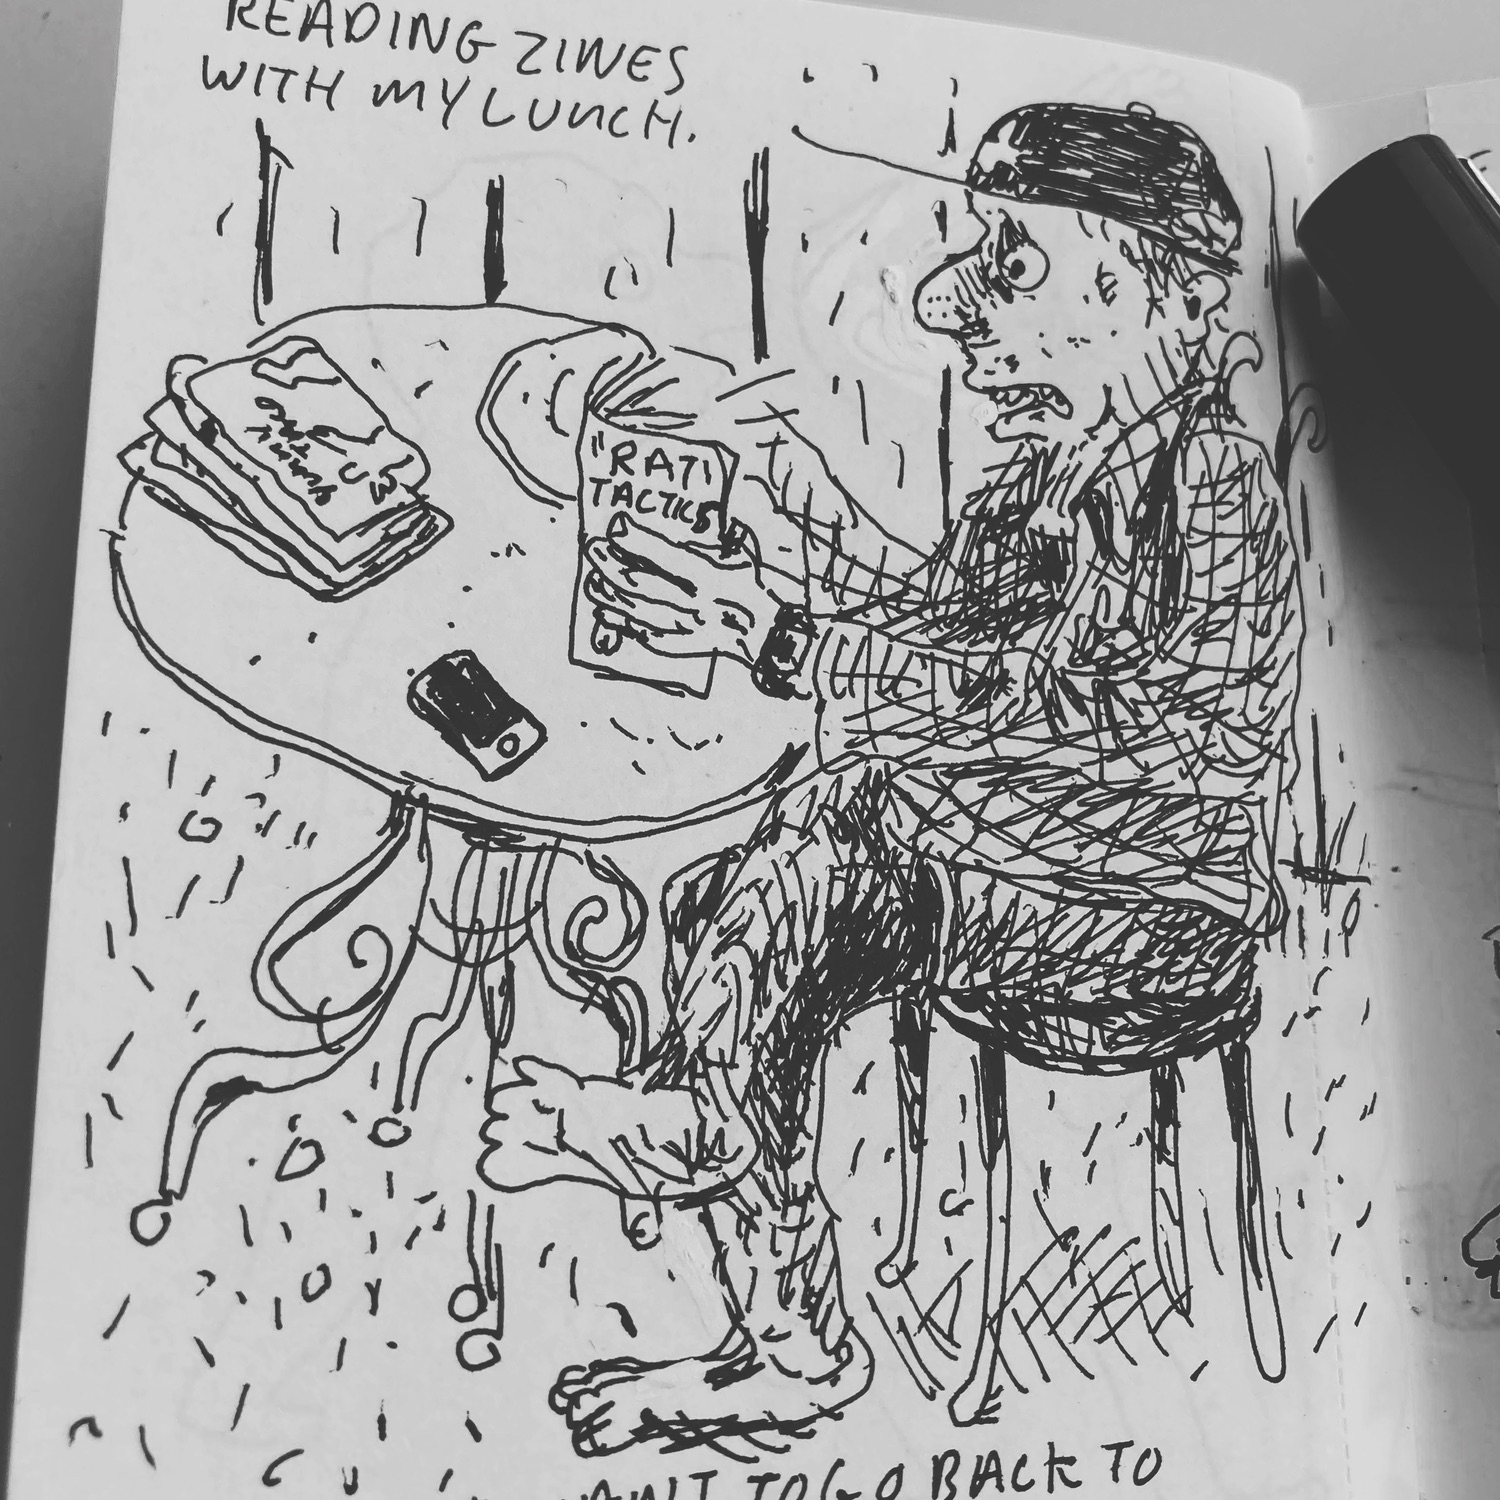 READING ZINES
WITH MY LUNCH.
"RATI
TACTICS
WANT TO GO BACK TO